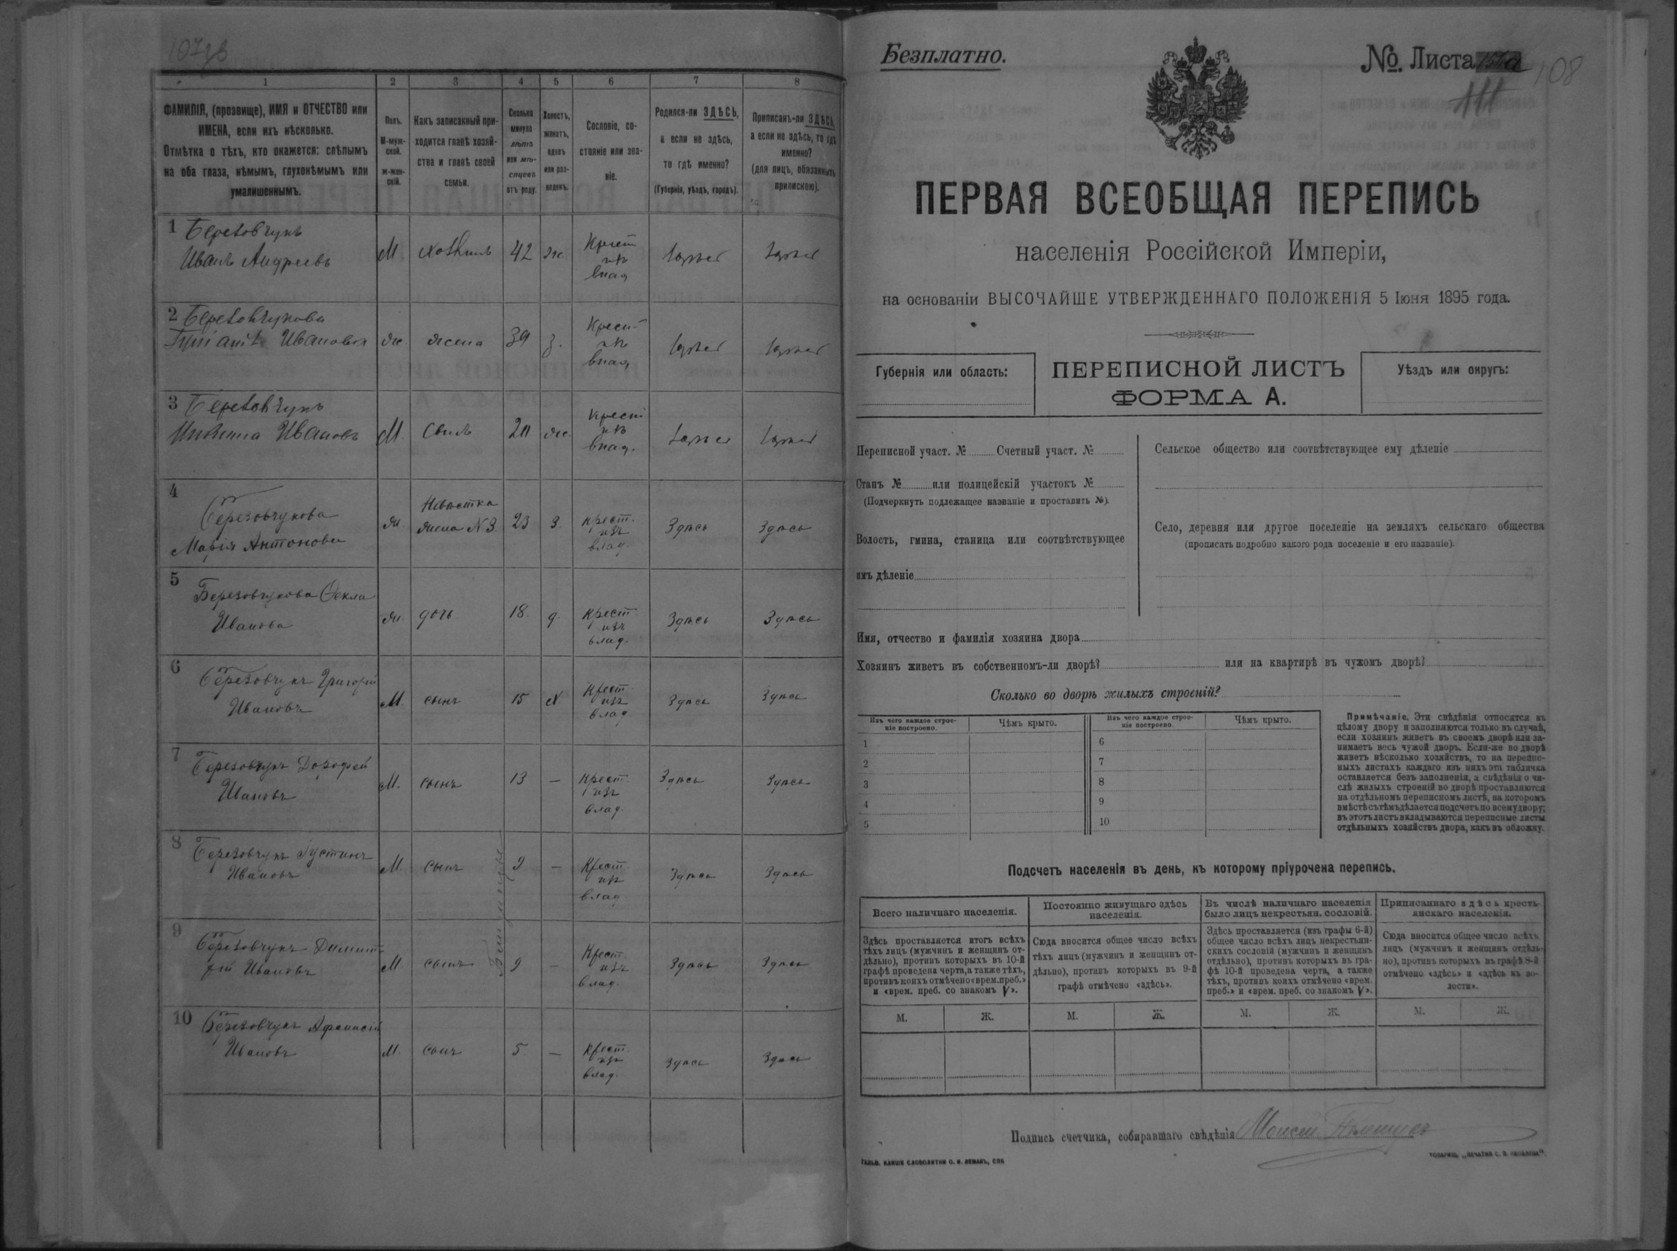 107об
1 2 3 4 5 6 7 8
ФАМИЛІЯ, (прозвище), ИМЯ и ОТЧЕСТВО или
ИМЕНА, если ихъ нѣсколько.
Отмѣтка о тѣхъ, кто окажется: слѣпымъ
на оба глаза, нѣмымъ, глухонѣмымъ или
умалишеннымъ.
Полъ.
М-муж-
ской.
ж-жен-
скій.
Какъ записанный при-
ходится главѣ хозяй-
ства и главѣ своей
семьи.
Сколько
минуло
лѣтъ
или мѣ-
сяцевъ
отъ роду.
Холостъ,
женатъ,
вдовъ
или раз-
веденъ.
Сословіе, со-
стояніе или зва-
ніе.
Родился-ли ЗДѢСЬ,
а если не здѣсь,
то гдѣ именно?
(Губернія, уѣздъ, городъ).
Приписанъ-ли ЗДѢСЬ,
а если не здѣсь, то гдѣ
именно?
(для лицъ, обязанныхъ
припискою).
1 Березовчукъ
Иванъ Андреевъ М хозяинъ 42 ж Крест изъ влад Здѣсь Здѣсь
2 Березовчукова
Ивановна ж жена 39 з. Крест изъ влад Здѣсь Здѣсь
3 Березовчукъ
Никита Ивановъ М Сынъ 20 ж Крест изъ влад. Здѣсь Здѣсь
4 Березовчукова
Марія Антонова ж. Невѣстка жена N3 23 з. Крест. изъ влад. Здѣсь Здѣсь
5 Березовчукова Ѳекла
Иванова ж. дочь 18 д. Крест. изъ влад. Здѣсь Здѣсь
6 Березовчукъ Григорій
Ивановъ М. сынъ 15 х Крест изъ влад. Здѣсь Здѣсь
7 Березовчукъ Дорофей
Ивановъ М. сынъ 13 — Крест изъ влад. Здѣсь Здѣсь
8 Березовчукъ Густинъ
Ивановъ М. сынъ 9 — Крест. изъ влад Здѣсь Здѣсь
Близнецы
9 Березовчукъ Димит
рій Ивановъ М. сынъ 9 — Крест. изъ влад. Здѣсь Здѣсь
10 Березовчукъ Афанасій
Ивановъ М. сынъ 5 — Крест изъ влад. Здѣсь Здѣсь
Безплатно.
№. Листа
108
111
ПЕРВАЯ ВСЕОБЩАЯ ПЕРЕПИСЬ
населенія Россійской Имперіи,
на основаніи ВЫСОЧАЙШЕ УТВЕРЖДЕННАГО ПОЛОЖЕНІЯ 5 Іюня 1895 года.
Губернія или область:
ПЕРЕПИСНОЙ ЛИСТЪ
ФОРМА А.
Уѣздъ или округъ:
Переписной участ. № Счетный участ. №
Станъ № или полицейскій участокъ №
(Подчеркнуть подлежащее названіе и проставить №).
Волость, гмина, станица или соотвѣтствующее
имъ дѣленіе
Сельское общество или соотвѣтствующее ему дѣленіе
Село, деревня или другое поселеніе на земляхъ сельскаго общества
(прописать подробно какого рода поселеніе и его названіе).
Имя, отчество и фамилія хозяина двора
Хозяинъ живетъ въ собственномъ-ли дворѣ? или на квартирѣ въ чужомъ дворѣ?
Сколько во дворѣ жилыхъ строеній?
Изъ чего каждое строе-
ніе построено.
Чѣмъ крыто.
Изъ чего каждое строе-
ніе построено.
Чѣмъ крыто.
1 6
2 7
3 8
4 9
5 10
Примѣчаніе. Эти свѣдѣнія относятся къ
цѣлому двору и заполняются только въ случаѣ,
если хозяинъ живетъ въ своемъ дворѣ или за-
нимаетъ весь чужой дворъ. Если-же во дворѣ
живетъ нѣсколько хозяйствъ, то на перепис-
ныхъ листахъ каждаго изъ нихъ эта табличка
оставляется безъ заполненія, а свѣдѣнія о чи-
слѣ жилыхъ строеній во дворѣ проставляются
на отдѣльномъ переписномъ листѣ, на которомъ
вмѣстѣ съ тѣмъ дѣлается подсчетъ по всему двору;
въ этотъ листъ вкладываются переписные листы
отдѣльныхъ хозяйствъ двора, какъ въ обложку.
Подсчетъ населенія въ день, къ которому пріурочена перепись.
Всего наличнаго населенія.
Постоянно живущаго здѣсь
населенія.
Въ числѣ наличнаго населенія
было лицъ некрестьян. сословій.
Приписаннаго здѣсь кресть-
янскаго населенія.
Здѣсь проставляется итогъ всѣхъ
тѣхъ лицъ (мужчинъ и женщинъ от-
дѣльно), противъ которыхъ въ 10-й
графѣ проведена черта, а также тѣхъ,
противъ коихъ отмѣчено «врем. преб.»
и «врем. преб. со знакомъ V».
Сюда вносится общее число всѣхъ
тѣхъ лицъ (мужчинъ и женщинъ от-
дѣльно), противъ которыхъ въ 9-й
графѣ отмѣчено «здѣсь».
Здѣсь проставляется (изъ графы 6-й)
общее число всѣхъ лицъ некрестьян-
скихъ сословій (мужчинъ и женщинъ
отдѣльно), противъ которыхъ въ гра-
фѣ 10-й проведена черта, а также
тѣхъ, противъ коихъ отмѣчено «врем.
преб.» и «врем. преб. со знакомъ V».
Сюда вносится общее число всѣхъ
лицъ (мужчинъ и женщинъ отдѣль-
но), противъ которыхъ въ графѣ 8-й
отмѣчено «здѣсь» и «здѣсь къ во-
лости».
М. Ж. М. Ж. М. Ж. М. Ж.
Подпись счетчика, собиравшаго свѣдѣнія Моисей
ТОВАРИЩ. „ПЕЧАТНЯ С. П. ЯКОВЛЕВА“.